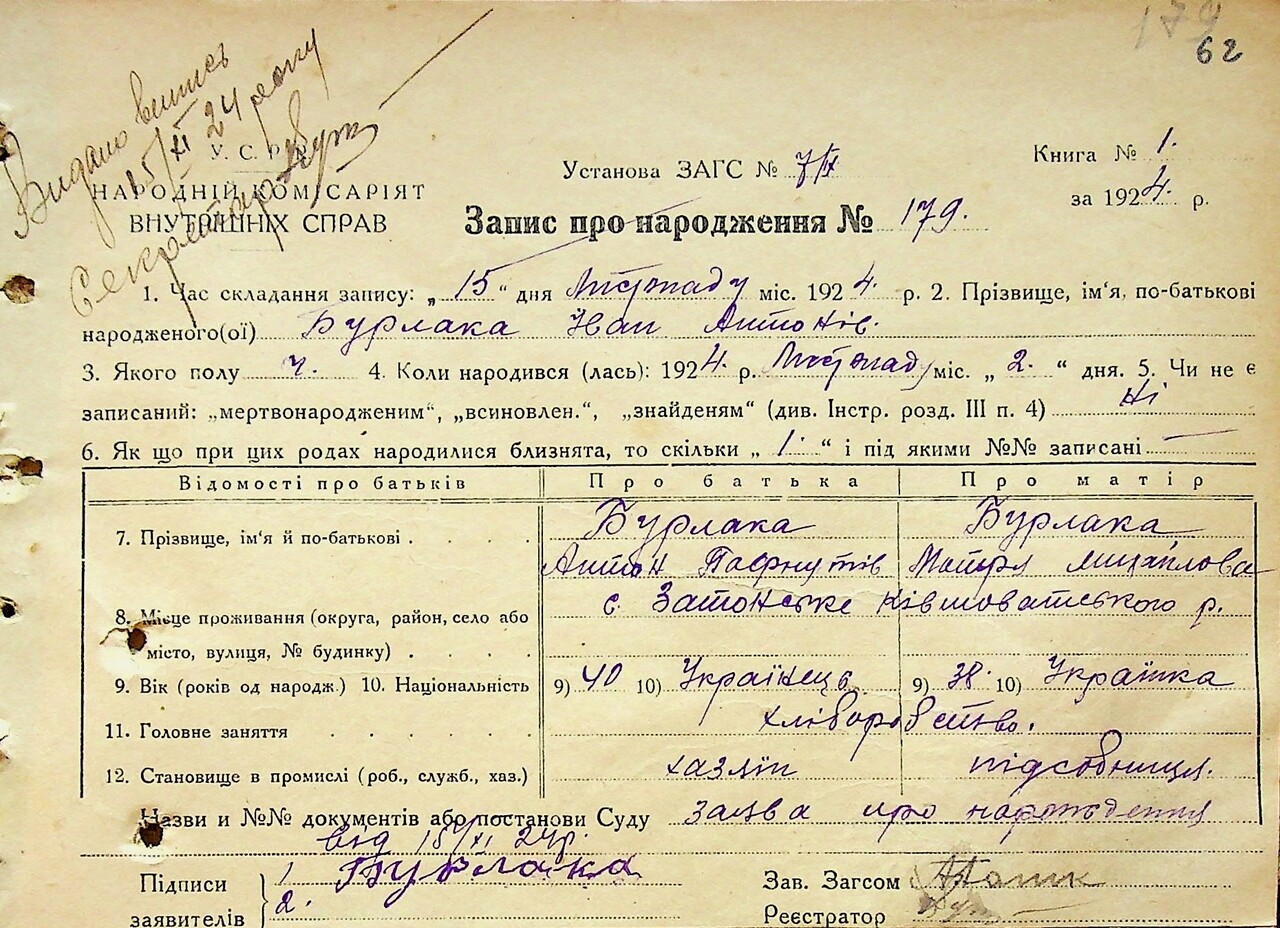 179
62
Видано випись
15/XI 24 року
Секретар
У. С. Р. Р.
НАРОДНІЙ КОМІСАРІЯТ
ВНУТРІШНІХ СПРАВ
Установа ЗАГС № 7/IX
Книга № 1.
за 1924. р.
Запис про народження № 179.
1. Час складання запису: „ 15 “ дня Листпаду міс. 1924. р. 2. Прізвище, ім'я, по-батькові
народженого(ої) Бурлака Іван Антонів.
3. Якого полу ч. 4. Коли народився (лась): 1924. р. Листпаду міс. „ 2. “ дня. 5. Чи не є
записаний: „мертвонародженим“, „всиновлен.“, „знайденям“ (див. Інстр. розд. III п. 4) ні
6. Як що при цих родах народилися близнята, то скільки „ 1. “ і під якими №№ записані —
Відомості про батьків Про батька Про матір
7. Прізвище, ім'я й по-батькові . . . . Бурлака Бурлака
Антон Пафнутів Мотря Михайлова
8. Місце проживання (округа, район, село або с. Затонське Ківшоватського р.
місто, вулиця, № будинку) . . . .
9. Вік (років од народж.) 10. Національність 9) 40 10) Українець 9) 38. 10) Українка
11. Головне заняття . . . . . . хліборобство.
12. Становище в промислі (роб., служб., хаз.) хазяїн підсобниця.
Назви и №№ документів або постанови Суду заява про народження
від 15/XI 24р.
Підписи заявителів 1 Бурлака
2.
Зав. Загсом
Реєстратор